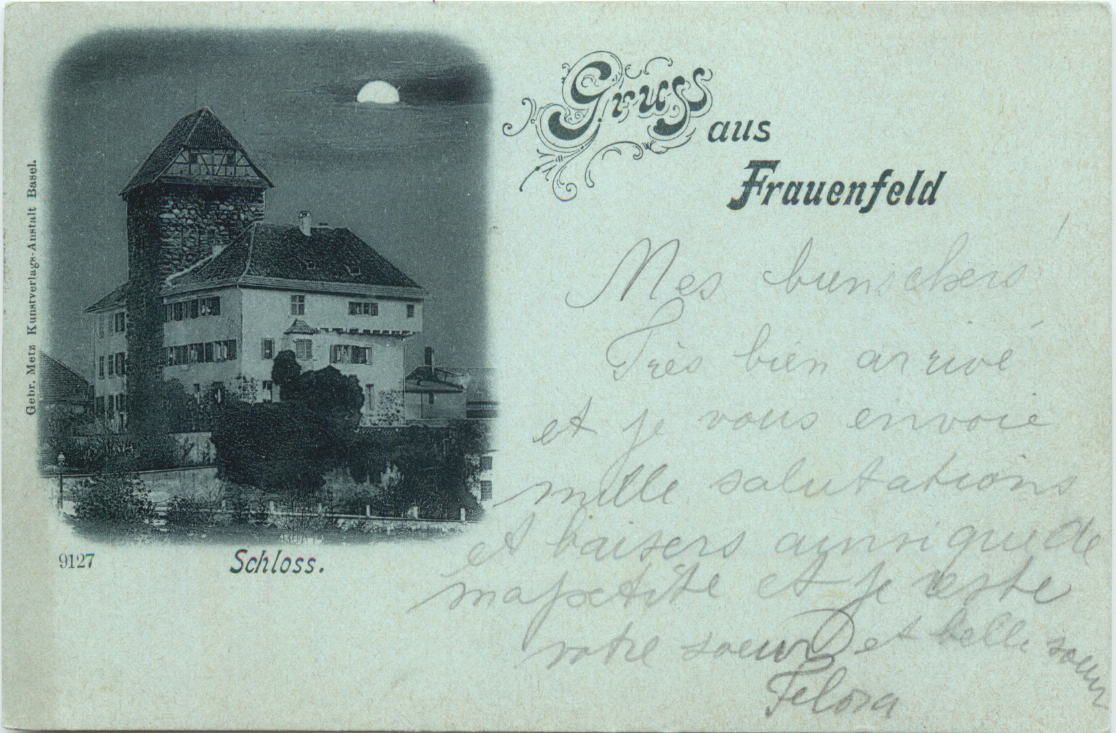 Gruss
aus
Frauenfeld
Gebr. Metz Kunstverlags-Anstalt Basel.
9127
Schloss.
Mes
Très bien arrivé
et je vous envoie
mille salutations
et baisers ainsi que de
ma petite et je reste
votre soeur et belle soeur